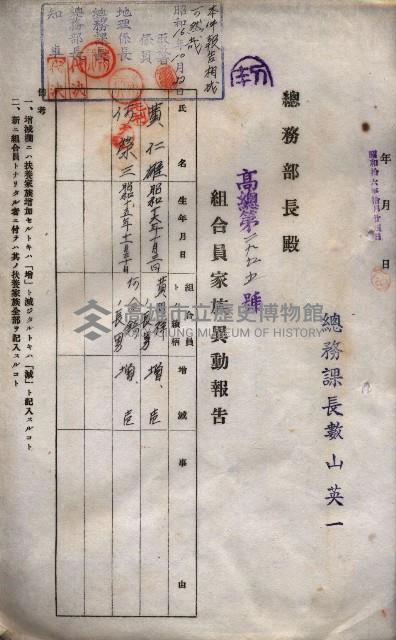 年 月 日
昭和拾六年拾月廿四日
總務課長數山英一
總務部長殿
高總第 號
組合員家族異動報告
氏名
生年月日
組合員トノ續柄
增減
事由
黃仁雄
昭和十六年十月三日
長男
增
何榮三
昭和十五年十一月三十日
長男
增
備考
一、增減欄ニハ扶養家族增加セルトキハ「增」ト減ジタルトキハ「減」ト記入スルコト
二、新ニ組合員トナリタル者ニ付テハ其ノ扶養家族全部ヲ記入スルコト
本件報告相成可然哉
昭和16年10月 日
係員
地理係長
總務課長
總務部長
知事
高雄市立歷史博物館
KAOHSIUNG MUSEUM OF HISTORY